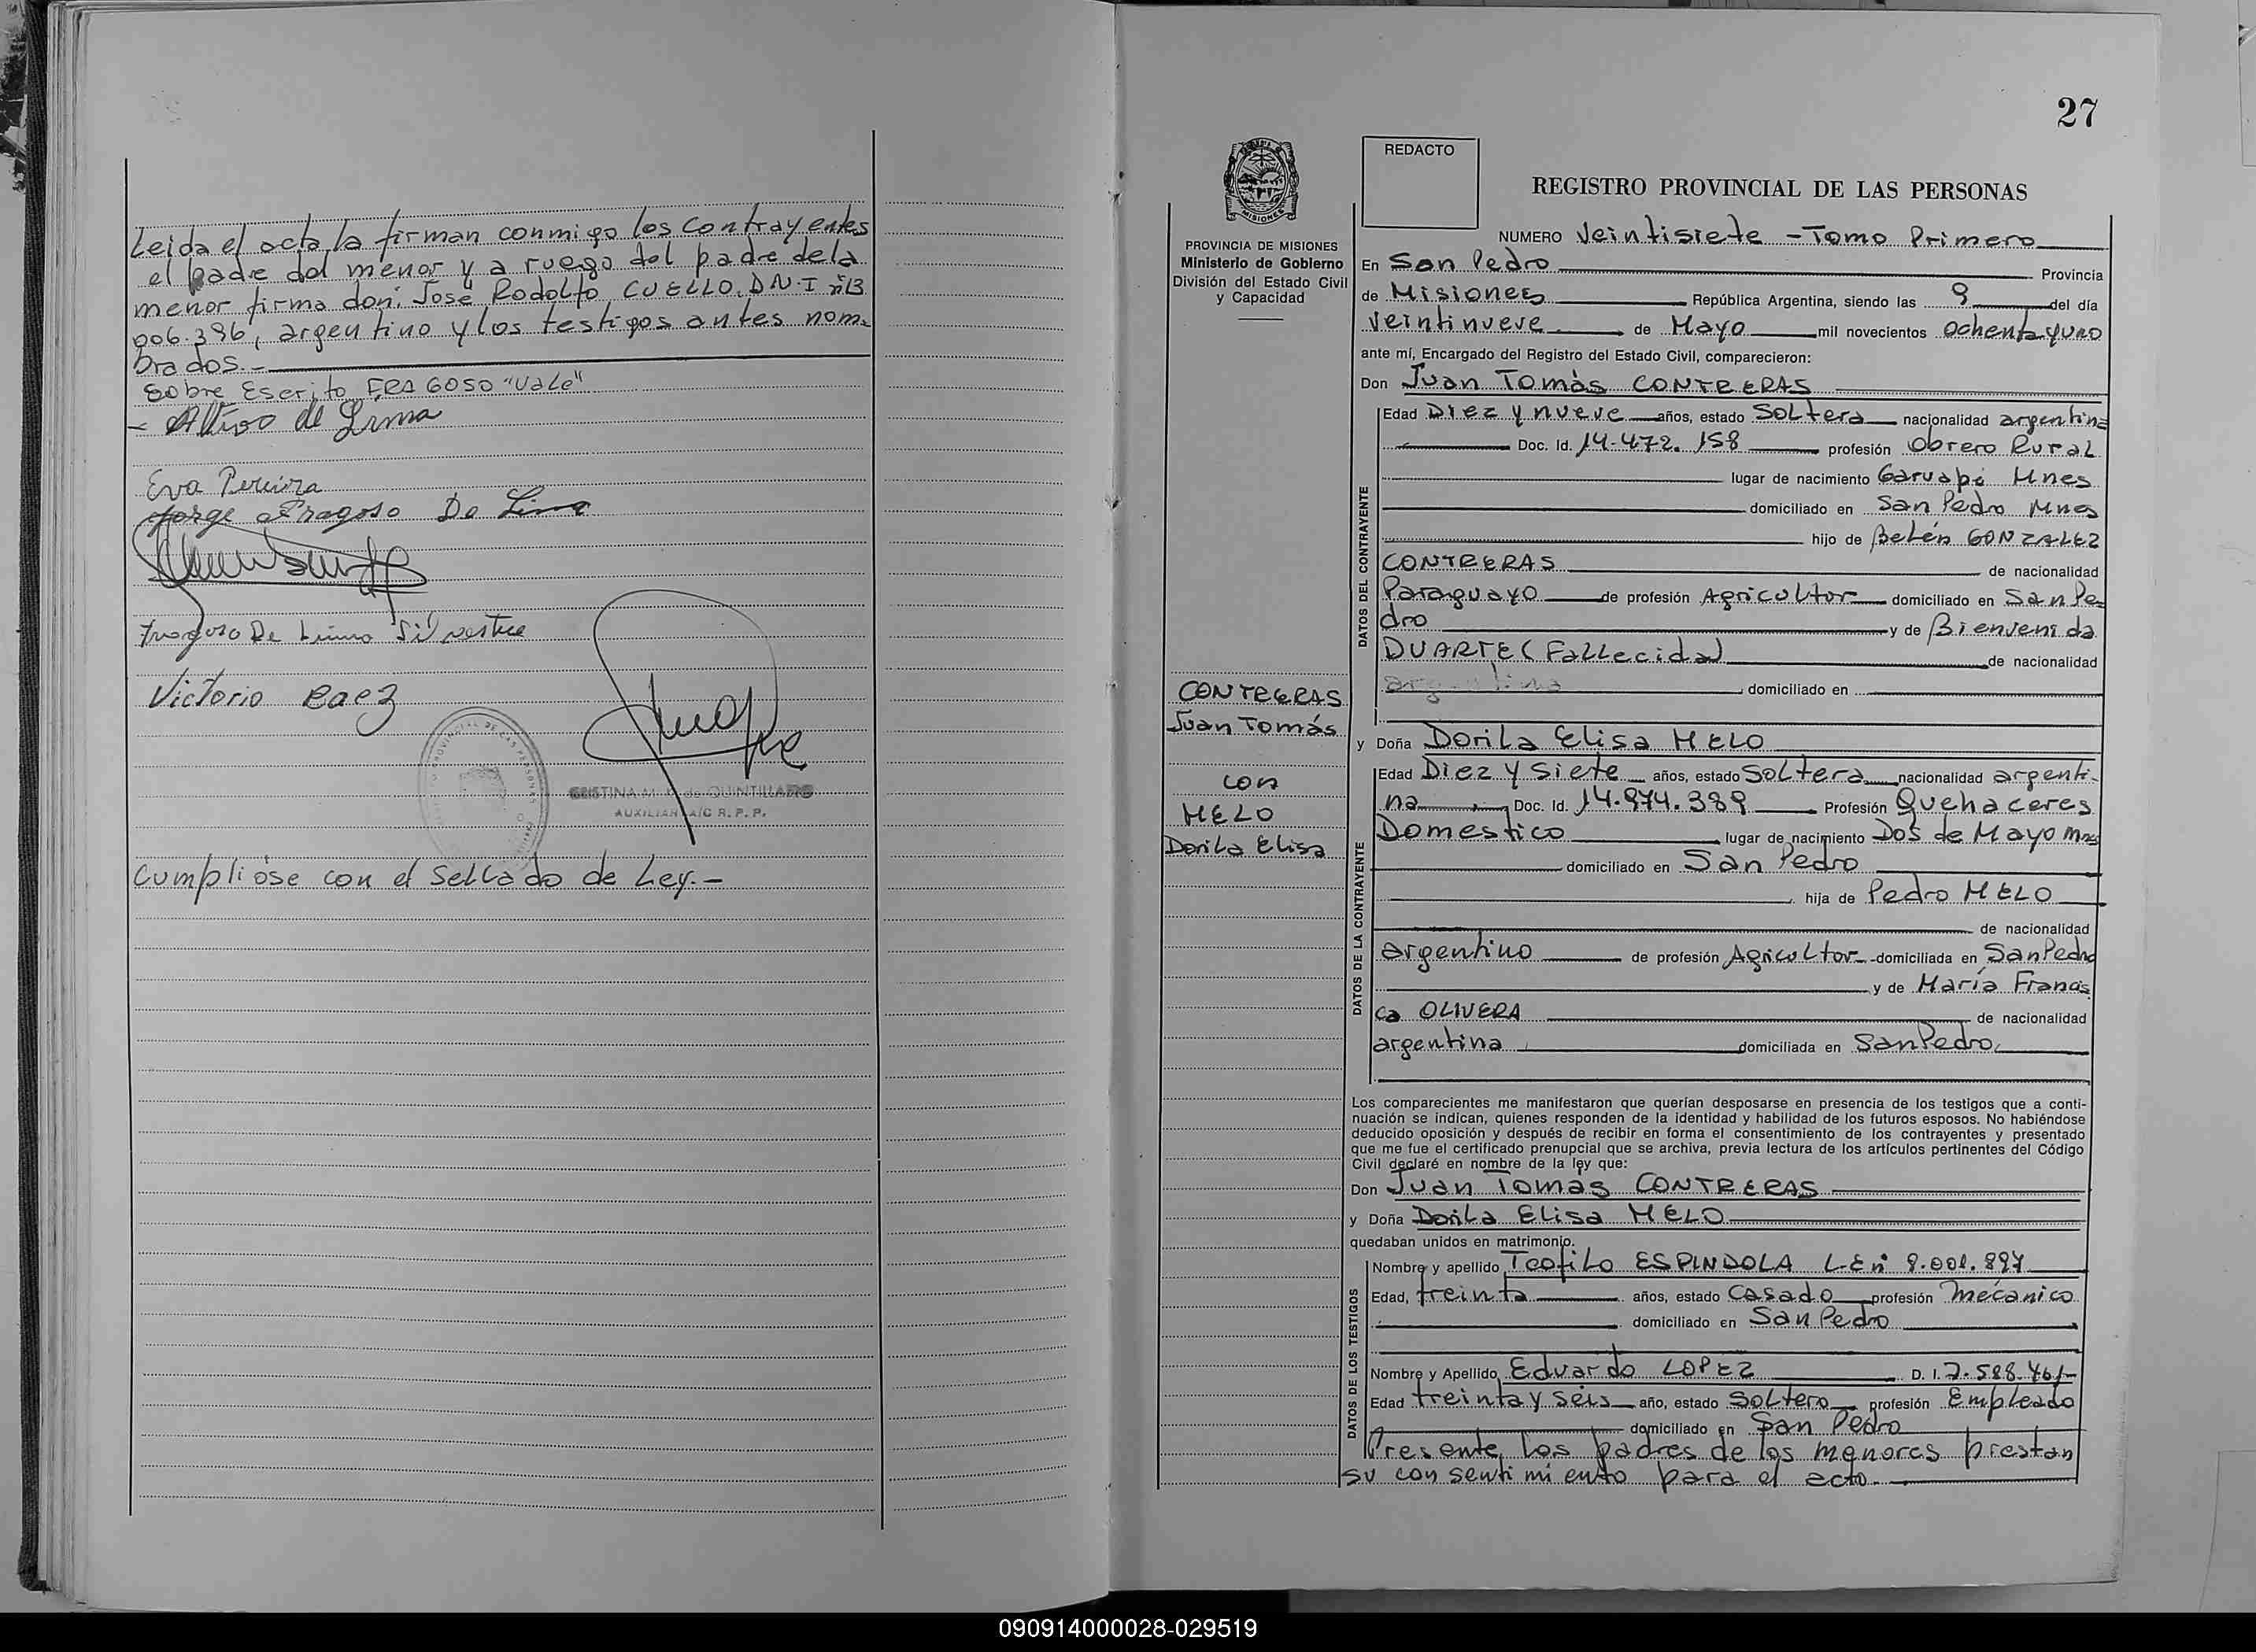 Leida el acta la firman conmigo los contrayentes
el padre del menor y a ruego del padre dela
menor firma don: José Rodolfo CUELLO, D.N.I
006.396, argentino y los testigos antes nom-
brados.-
Sobre Escrito FRAGOSO "Vale"
- Altivo de Lima
Eva Pereira
Jorge Fragoso De Lima
Fragoso De Lima Silvestre
Victorio Baez
CRISTINA M. de QUINTILLAN
AUXILIAR A/C R. P. P.
Cumplióse con el Sellado de Ley.-
27
REDACTO
REGISTRO PROVINCIAL DE LAS PERSONAS
MISIONES
PROVINCIA DE MISIONES
Ministerio de Gobierno
División del Estado Civil
y Capacidad
NUMERO Veintisiete - Tomo Primero
En San Pedro Provincia
de Misiones República Argentina, siendo las 9 del día
Veintinueve de Mayo mil novecientos ochenta y uno
ante mí, Encargado del Registro del Estado Civil, comparecieron:
Don Juan Tomás CONTRERAS
DATOS DEL CONTRAYENTE
Edad Diez y nueve años, estado Soltero nacionalidad argentino
Doc. Id. 14.472.158 profesión Obrero Rural
lugar de nacimiento Garuapé Mnes
domiciliado en San Pedro Mnes
hijo de Belén GONZALEZ
CONTRERAS de nacionalidad
Paraguayo de profesión Agricultor domiciliado en San Pe-
dro y de Bienvenida
DUARTE (Fallecida) de nacionalidad
argentina domiciliado en
CONTRERAS
Juan Tomás
con
MELO
Dorila Elisa
y Doña Dorila Elisa MELO
DATOS DE LA CONTRAYENTE
Edad Diez y Siete años, estado Soltera nacionalidad argenti-
na Doc. Id. 14.974.389 Profesión Quehaceres
Domestico lugar de nacimiento Dos de Mayo Mnes
domiciliado en San Pedro
hija de Pedro MELO
de nacionalidad
argentino de profesión Agricultor - domiciliada en San Pedro
y de María Francis
ca OLIVERA de nacionalidad
argentina domiciliada en San Pedro
Los comparecientes me manifestaron que querían desposarse en presencia de los testigos que a conti-
nuación se indican, quienes responden de la identidad y habilidad de los futuros esposos. No habiéndose
deducido oposición y después de recibir en forma el consentimiento de los contrayentes y presentado
que me fue el certificado prenupcial que se archiva, previa lectura de los artículos pertinentes del Código
Civil declaré en nombre de la ley que:
Don Juan Tomás CONTRERAS
y Doña Dorila Elisa MELO
quedaban unidos en matrimonio.
DATOS DE LOS TESTIGOS
Nombre y apellido Teofilo ESPINDOLA L.E n°
Edad, treinta años, estado Casado profesión Mecánico
domiciliado en San Pedro
Nombre y Apellido Eduardo LOPEZ D. I. 7.588.461
Edad treinta y seis año, estado Soltero profesión Empleado
domiciliado en San Pedro
Presente los padres de los menores prestan
su consentimiento para el acto.
090914000028-029519